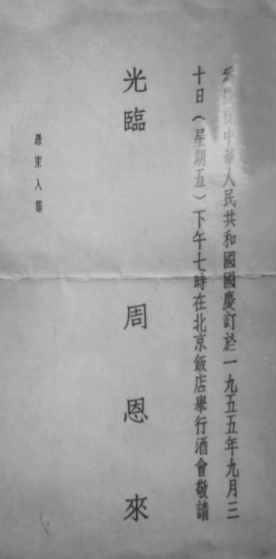 為慶祝中華人民共和國國慶訂於一九五五年九月三
十日（星期五）下午七時在北京飯店舉行酒會敬請
光臨
周恩來
憑柬入場